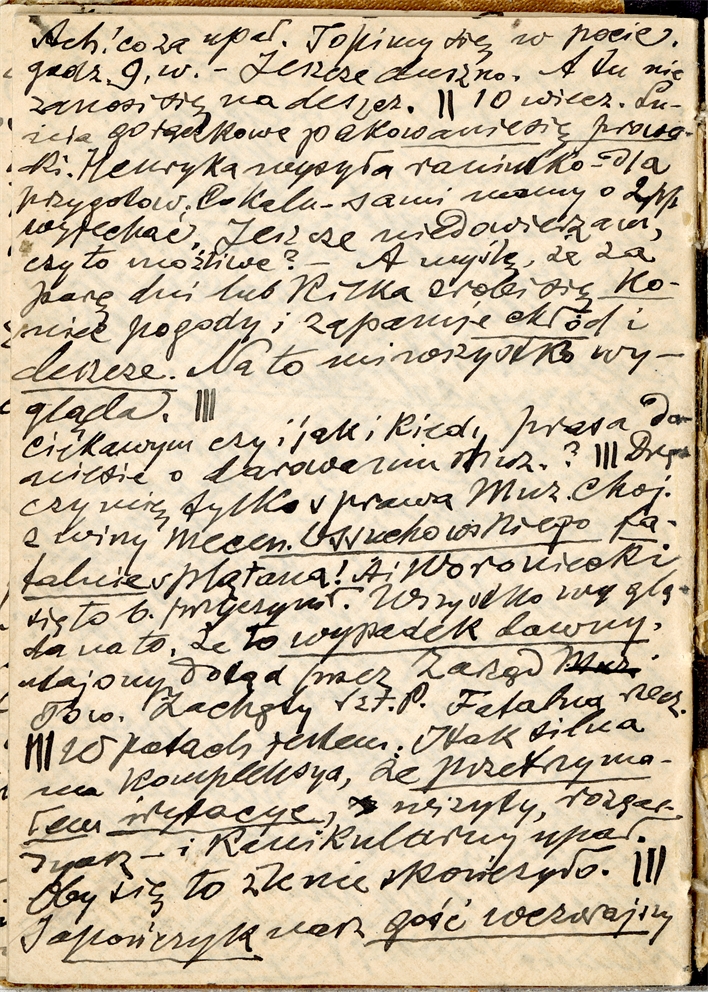 Ach! co za upał. Topimy się w pocie.
godz. 9. w. – Jeszcze duszno. A tu nie
zanosi się na deszcz. || 10 wiecz. Lu-
nia gorączkowe pakowanie się
Henryka wysyła raniutko – dla
przygotow. sami mamy o 2pp
wyjechać. Jeszcze niedowierzam,
czy to możliwe? – A myślę, że za
parę dni lub kilka zrobi się ko-
niec pogody i zapanuje chłód i
deszcze. Na to mi wszystko wy-
gląda. |||
ciekawym czy i jak i kiedy prasa do-
niesie o darowaniu Muz.? |||
czy nią tylko sprawa Muz.
z winy Mecen. Osuchowskiego fa-
talnie splątana! A i Woroniecki
się to b. przyczynił. Wszystko wyglą-
da na to, że to wypadek dawny,
utajony dotąd przez Zarząd Muz.
Tow. Zachęty Szt. P. Fatalna rzecz.
||| W potach jestem. I tak silna
ma kompleksya, że przetrzyma-
łem irytacye, wizyty, rozgar-
dyasz – i kanikularny upał.
Oby się to źle nie skończyło. |||
Japończyk nasz gość wczorajszy